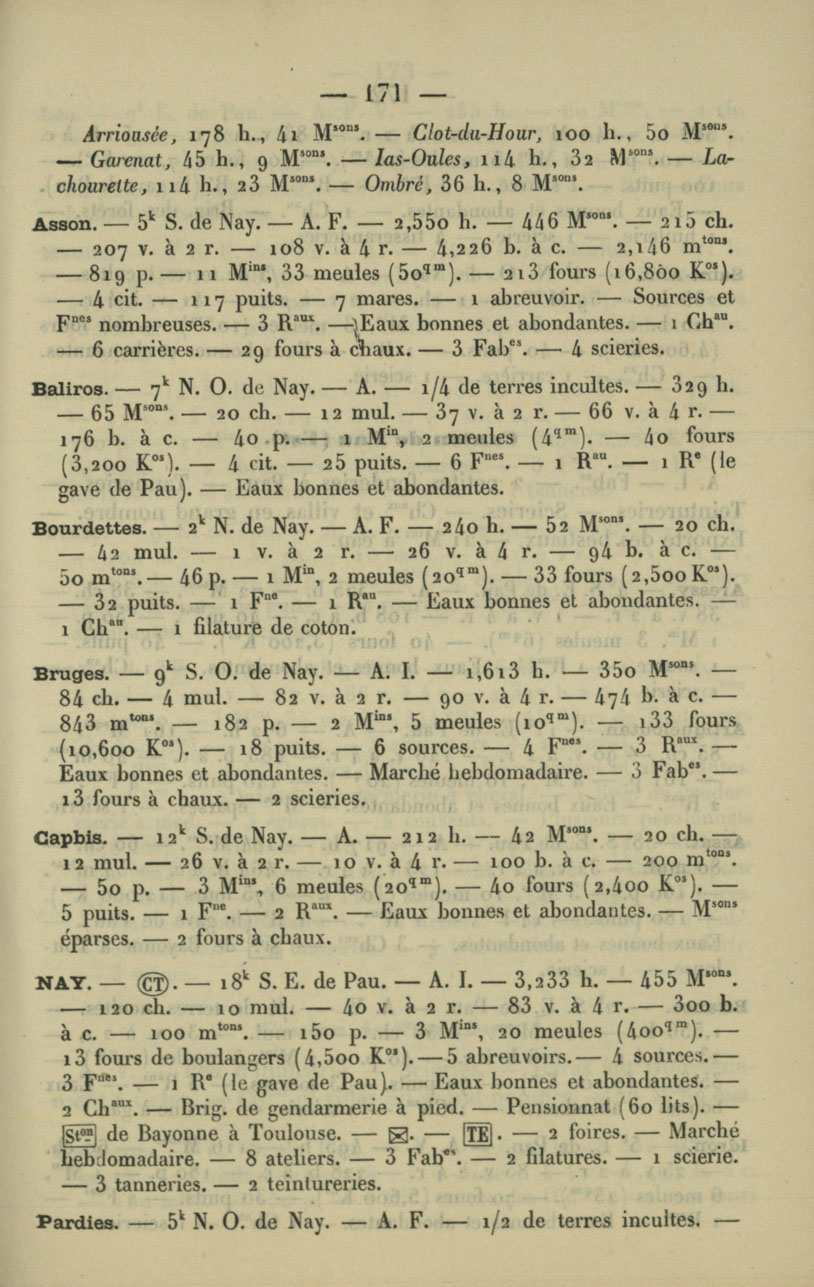 — 171 —
Arriousée, 178 h., 41 Mˢᵒⁿˢ. — Clot-du-Hour, 100 h., 50 Mˢᵒⁿˢ.
— Garenat, 45 h., 9 Mˢᵒⁿˢ. — Ias-Oules, 114 h., 32 Mˢᵒⁿˢ. — La-
chourette, 114 h., 23 Mˢᵒⁿˢ. — Ombré, 36 h., 8 Mˢᵒⁿˢ.
Asson. — 5ᵏ S. de Nay. — A. F. — 2,550 h. — 446 Mˢᵒⁿˢ. — 215 ch.
— 207 v. à 2 r. — 108 v. à 4 r. — 4,226 b. à c. — 2,146 mᵗᵒⁿˢ.
— 819 p. — 11 Mⁱⁿˢ, 33 meules (50qᵐ). — 213 fours (16,800 Kᵒˢ).
— 4 cit. — 117 puits. — 7 mares. — 1 abreuvoir. — Sources et
Fⁿᵉˢ nombreuses. — 3 Rᵃᵘˣ. — Eaux bonnes et abondantes. — 1 Chᵃᵘ.
— 6 carrières. — 29 fours à chaux. — 3 Fabᵉˢ. — 4 scieries.
Baliros. — 7ᵏ N. O. de Nay. — A. — 1/4 de terres incultes. — 329 h.
— 65 Mˢᵒⁿˢ. — 20 ch. — 12 mul. — 37 v. à 2 r. — 66 v. à 4 r. —
176 b. à c. — 40 p. — 1 Mⁱⁿ, 2 meules (4qᵐ). — 40 fours
(3,200 Kᵒˢ). — 4 cit. — 25 puits. — 6 Fⁿᵉˢ. — 1 Rᵃᵘ. — 1 Rᵉ (le
gave de Pau). — Eaux bonnes et abondantes.
Bourdettes. — 2ᵏ N. de Nay. — A. F. — 240 h. — 52 Mˢᵒⁿˢ. — 20 ch.
— 42 mul. — 1 v. à 2 r. — 26 v. à 4 r. — 94 b. à c. —
50 mᵗᵒⁿˢ. — 46 p. — 1 Mⁱⁿ, 2 meules (20qᵐ). — 33 fours (2,500 Kᵒˢ).
— 32 puits. — 1 Fⁿᵉ. — 1 Rᵃᵘ. — Eaux bonnes et abondantes. —
1 Chᵃᵘ. — 1 filature de coton.
Bruges. — 9ᵏ S. O. de Nay. — A. I. — 1,613 h. — 350 Mˢᵒⁿˢ. —
84 ch. — 4 mul. — 82 v. à 2 r. — 90 v. à 4 r. — 474 b. à c. —
843 mᵗᵒⁿˢ. — 182 p. — 2 Mⁱⁿˢ, 5 meules (10qᵐ). — 133 fours
(10,600 Kᵒˢ). — 18 puits. — 6 sources. — 4 Fⁿᵉˢ. — 3 Rᵃᵘˣ. —
Eaux bonnes et abondantes. — Marché hebdomadaire. — 3 Fabᵉˢ. —
13 fours à chaux. — 2 scieries.
Capbis. — 12ᵏ S. de Nay. — A. — 212 h. — 42 Mˢᵒⁿˢ. — 20 ch. —
12 mul. — 26 v. à 2 r. — 10 v. à 4 r. — 100 b. à c. — 200 mᵗᵒⁿˢ.
— 50 p. — 3 Mⁱⁿˢ, 6 meules (20qᵐ). — 40 fours (2,400 Kᵒˢ). —
5 puits. — 1 Fⁿᵉ. — 2 Rᵃᵘˣ. — Eaux bonnes et abondantes. — Mˢᵒⁿˢ
éparses. — 2 fours à chaux.
NAY. — CT. — 18ᵏ S. E. de Pau. — A. I. — 3,233 h. — 455 Mˢᵒⁿˢ.
— 120 ch. — 10 mul. — 40 v. à 2 r. — 83 v. à 4 r. — 300 b.
à c. — 100 mᵗᵒⁿˢ. — 150 p. — 3 Mⁱⁿˢ, 20 meules (400qᵐ). —
13 fours de boulangers (4,500 Kᵒˢ). — 5 abreuvoirs. — 4 sources. —
3 Fⁿᵉˢ. — 1 Rᵉ (le gave de Pau). — Eaux bonnes et abondantes. —
2 Chᵃᵘˣ. — Brig. de gendarmerie à pied. — Pensionnat (60 lits). —
Stᵒⁿ de Bayonne à Toulouse. — ✉. — TE. — 2 foires. — Marché
hebdomadaire. — 8 ateliers. — 3 Fabᵉˢ. — 2 filatures. — 1 scierie.
— 3 tanneries. — 2 teintureries.
Pardies. — 5ᵏ N. O. de Nay. — A. F. — 1/2 de terres incultes. —